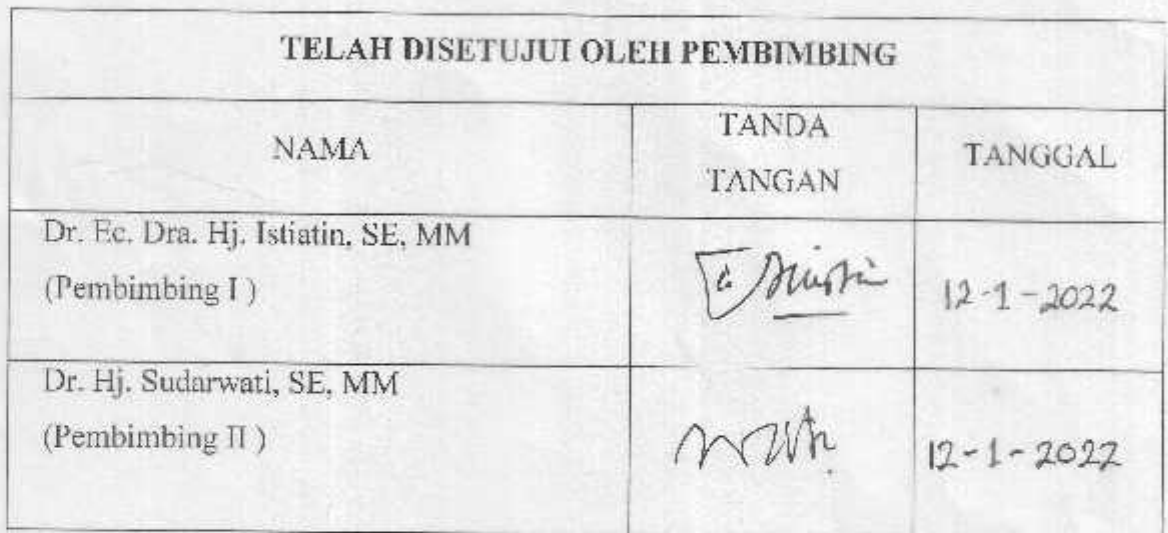 TELAH DISETUJUI OLEH PEMBIMBING
NAMA
TANDA
TANGAN
TANGGAL
Dr. Ec. Dra. Hj. Istiatin, SE, MM
(Pembimbing I )
12-1-2022
Dr. Hj. Sudarwati, SE, MM
(Pembimbing II )
12-1-2022